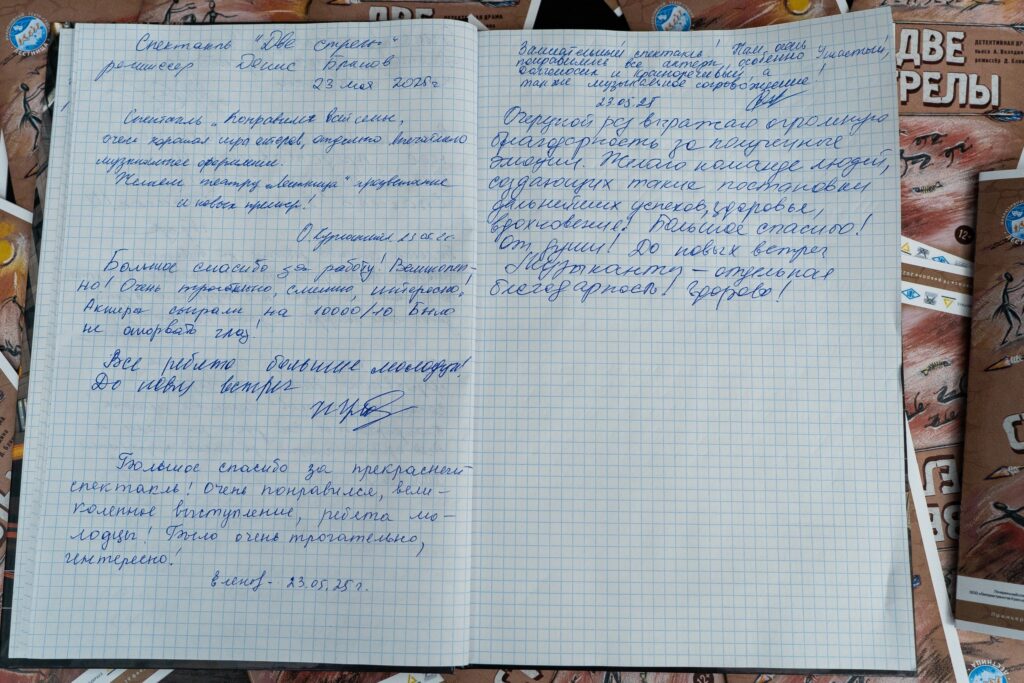 Спектакль "Две стрелы"
режиссер Денис
23 мая 2025г
Спектакль понравился всей семье,
очень хорошая игра актеров, отдельно впечатлило
музыкальное оформление.
Желаем театру „Лестница" процветания
и новых премьер!
Большое спасибо за работу! Великолеп-
но! Очень трогательно, смешно, интересно!
Актеры сыграли на 10000/10. Было
не оторвать глаз!
Все ребята большие молодцы!
До новых встреч
Большое спасибо за прекрасный
спектакль! Очень понравился, вели-
колепное выступление, ребята мо-
лодцы! Было очень трогательно,
интересно!
23.05.25г.
Замечательный спектакль! Нам очень
понравились все актеры, особенно Ушастый,
Долгоносик и Красноречивый, а
также музыкальное сопровождение!
23.05.25
Очередной раз выражаю огромную
благодарность за полученные
эмоции. Желаю команде людей,
создающих такие постановки
дальнейших успехов, здоровья,
вдохновения! Большое спасибо!
От души! До новых встреч
Музыканту – отдельная
благодарность! Здорово!
ДВЕ
ТРЕЛЫ
ДЕТЕКТИВНАЯ ДРАМА
12+